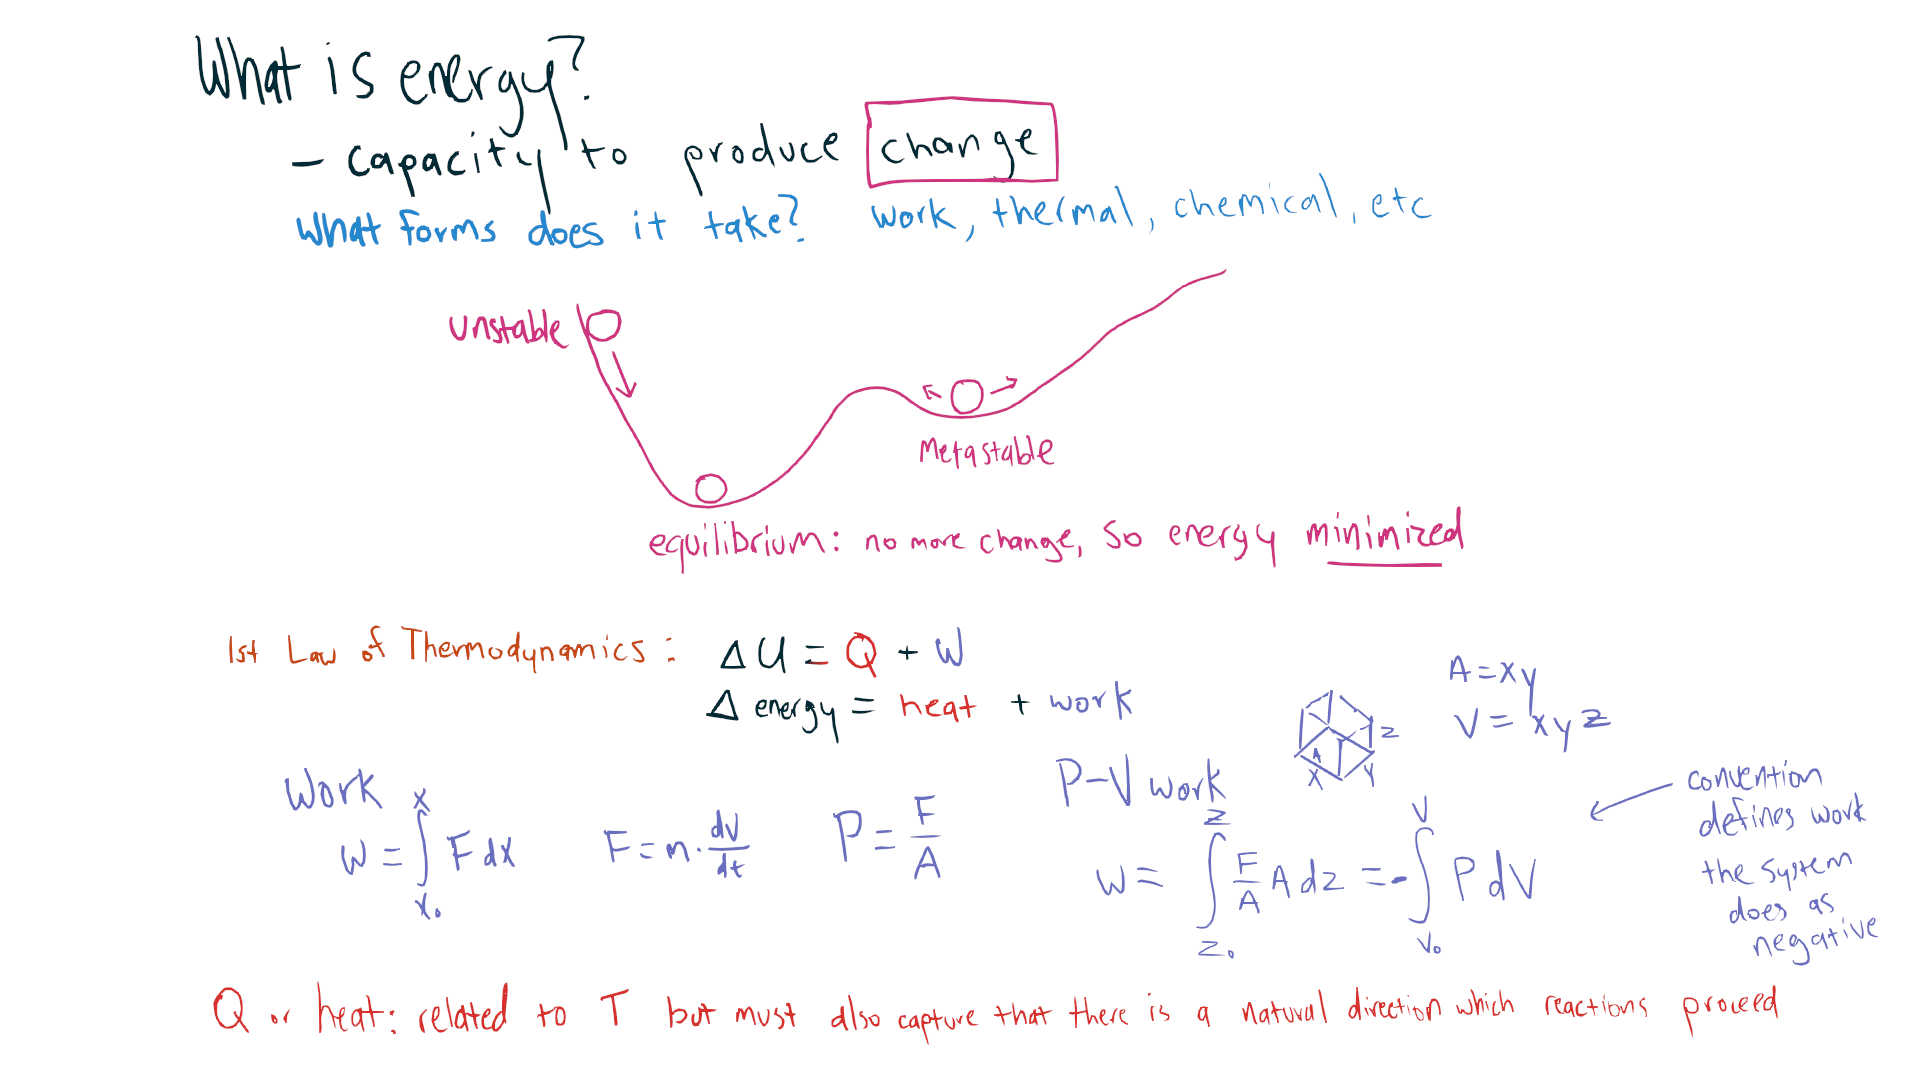 What is energy?
- capacity to produce change
What forms does it take? work, thermal, chemical, etc
Unstable
Metastable
equilibrium: no more change, so energy minimized
1st Law of Thermodynamics: ΔU = Q + W
Δ energy = heat + work
A = xy
V = xyz
z
A
x
y
Work
W = ∫ₓ₀ˣ F dx
F = m · dv/dt
P = F/A
P-V work
W = ∫_z₀^z F/A A dz = -∫_V₀^V P dV
convention
defines work
the system
does as
negative
Q or heat: related to T but must also capture that there is a natural direction which reactions proceed